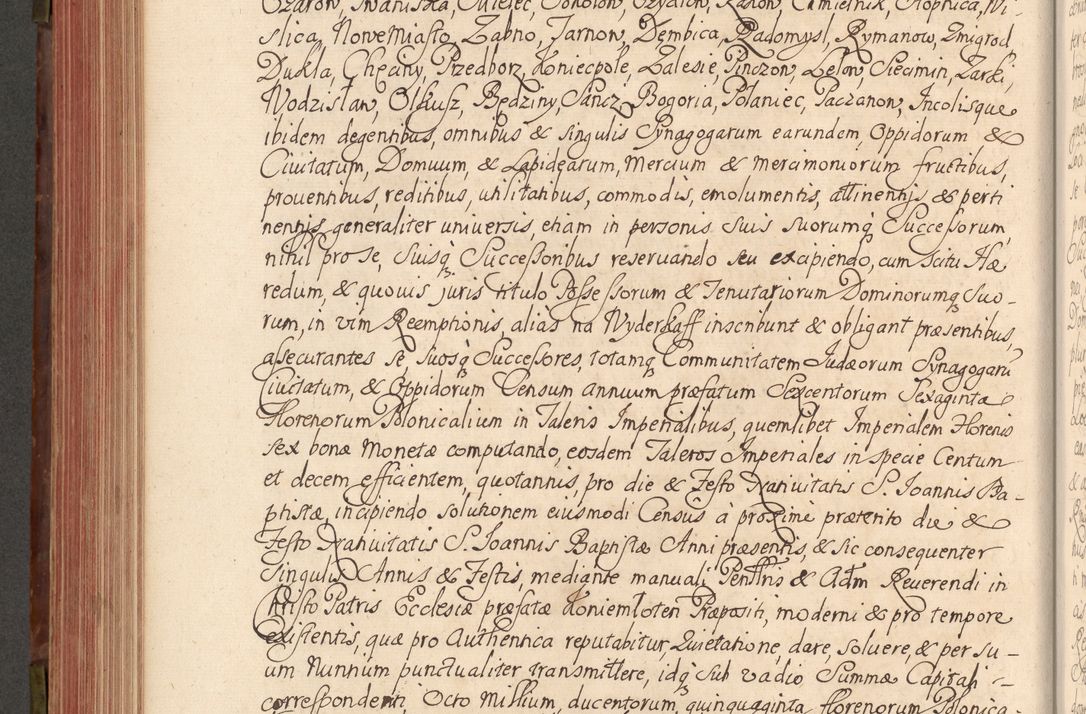 Ożarow, Iwaniska, Mielec, Sokolow, Użyalow, Rakow, Camielnik, Stopnica, Wi-
slica, Nowe Miasto, Zabno, Tarnow, Dembica, Radomysl, Rymanow, Zmigrod,
Dukla, Chęciny, Przedborz, Koniecpole, Zalesie, Pinczow, Lelow, Siecimin, Zarki,
Wodzislaw, Olkusz, Będziny, Sancz, Bogoria, Polaniec, Paczanow, Incolisque
ibidem degentibus, omnibus & singulis Synagogarum earundem, Oppidorum &
Ciuitatum, Domuum, & Lapidearum, Mercium & mercimoniorum fructibus,
prouentibus, reditibus, utilitatibus, commodis, emolumentis, attinentijs & perti
nentijs generaliter uniuersis, etiam in personis suis suorumq Successorum,
nihil pro se, suisq Successoribus reseruando seu excipiendo, cum scitu Hæ
redum, & quouis juris titulo Possessorum & Tenutariorum Dominorumq suo-
rum, in vim Reemptionis, alias na Wyderkaff inscribunt & obligant præsentibus,
assecurantes se, suosq Successores, totamq Communitatem Iudæorum Synagogarū
Ciuitatum, & Oppidorum Censum annuum præfatum Sexcentorum Sexaginta
Florenorum Polonicalium in Taleris Imperialibus, quemlibet Imperialem Florenis
sex bonæ Monetæ computando, eosdem Taleros Imperiales in specie Centum
et decem efficientem, quotannis, pro die & Festo Natiuitatis S. Ioannis Ba-
ptistæ, incipiendo solutionem eiusmodi Census à proximè præterito die &
Festo Natiuitatis S. Ioannis Baptistæ Anni præsentis, & sic consequenter
singulis Annis & Festis, mediante manuali Penltris & Adm Reuerendi in
Christo Patris Ecclesiæ præfatæ Koniemloten Præpositi, moderni & pro tempore
existentis, quæ pro Authentica reputabitur, Quietatione, dare, soluere, & per su-
um Nunnum punctualiter transmittere, idq sub vadio Summæ Capitali
correspondenti, Octo Millium, ducentorum, quinquaginta florenorum Polonica-